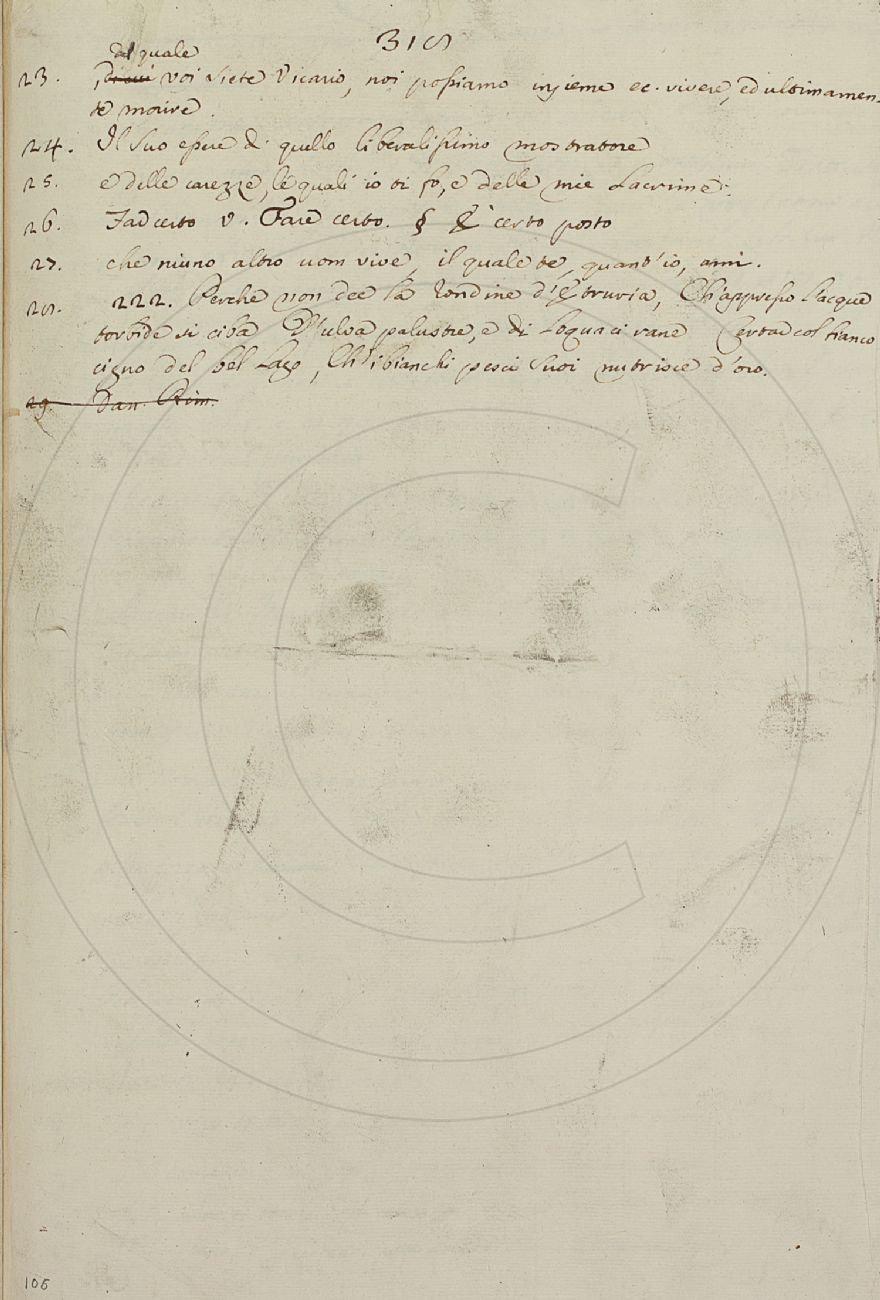 318
del quale
23. , di cui voi siete Vicario, noi possiamo insieme ec. vivere, ed ultimamen-
te morire.
24. Il suo essere di quello liberalissimo mostratore
25. e delle carezze, le quali io ti fo, e delle mie Lacrime.
26. Far certo v. Fare certo. § E' certo posto
27. che niuno altro uom vive, il quale te, quant'io, ami.
28. 222. Perchè non dee la rondine d'Etruria, Ch'appresso l'acque
torbide si ciba D'ulva palustre, e di loquaci rane Certar col bianco
cigno del bel Lago, Ch'i bianchi pesci suoi nutrisce d'oro.
29. Dan. Rim.
106